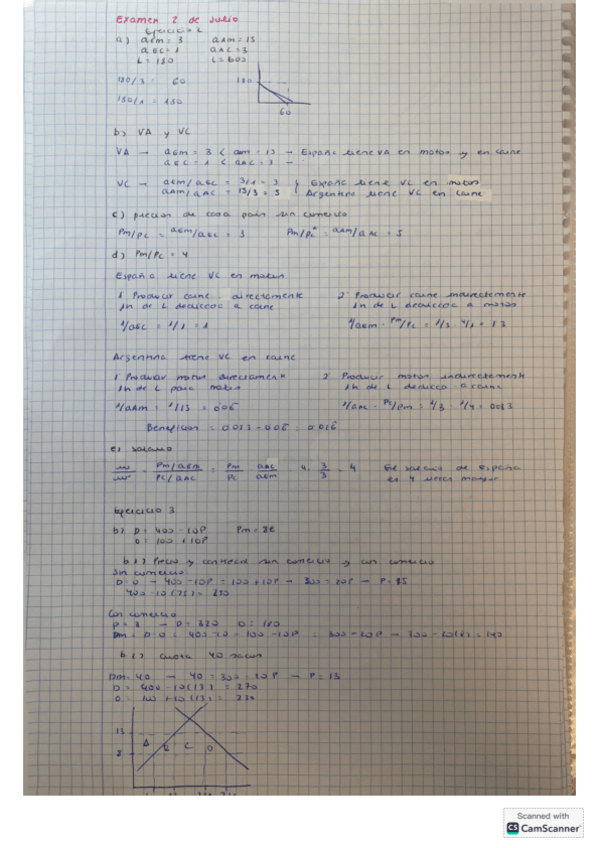 Examen 2 de Julio
Ejercicio 2
a) aEm = 3 aAm = 15
aEC = 1 aAC = 3
L = 180 L = 600
180/3 = 60
180/1 = 180
180
60
b) VA y VC
VA → aEm = 3 < aAm = 15 → España tiene VA en motos y en carne
aEC = 1 < aAC = 3 →
VC → aEm/aEC = 3/1 = 3 } España tiene VC en motos
aAm/aAC = 15/3 = 5 Argentina tiene VC en carne
c) precios de cada pais sin comercio
Pm/Pc = aEm/aEC = 3 Pm/Pc* = aAm/aAC = 5
d) Pm/Pc = 4
España tiene VC en motos
1 Producir carne directamente
1h de L dedicada a carne
1/aEC = 1/1 = 1
2 Producir carne indirectamente
1h de L dedicada a motos
1/aEm · Pm/Pc = 1/3 · 4/1 = 1'3
Argentina tiene VC en carne
1 Producir motos directament
1h de L para motos
1/aAm = 1/15 = 0'06
2 Producir motos indirectament
1h de L dedicada a carne
1/aAC · Pc/Pm = 1/3 · 1/4 = 0'083
Benefician = 0'083 - 0'06 = 0'016
e) salario
w/w* = Pm/aEm / Pc/aAC = Pm/Pc · aAC/aEm = 4 · 3/3 = 4 El salario de España
es 4 veces mayor
Ejercicio 3
b) D = 400 - 10P Pm = 8€
O = 100 + 10P
b1) Precio y sin comercio y con comercio
Sin comercio:
D = O → 400 - 10P = 100 + 10P → 300 = 20P → P = 15
400 - 10(15) = 250
Con comercio
P = 8 → D = 320 O = 180
Dm = D - O = 400 - 10 - 100 - 10P = 300 - 20P → 300 - 20(8) = 140
b2) Cuota 40
Dm = 40 → 40 = 300 - 20P → P = 13
D = 400 - 10(13) = 270
O = 100 + 10(13) = 230
13
8
A B C D
Scanned with
CS CamScanner